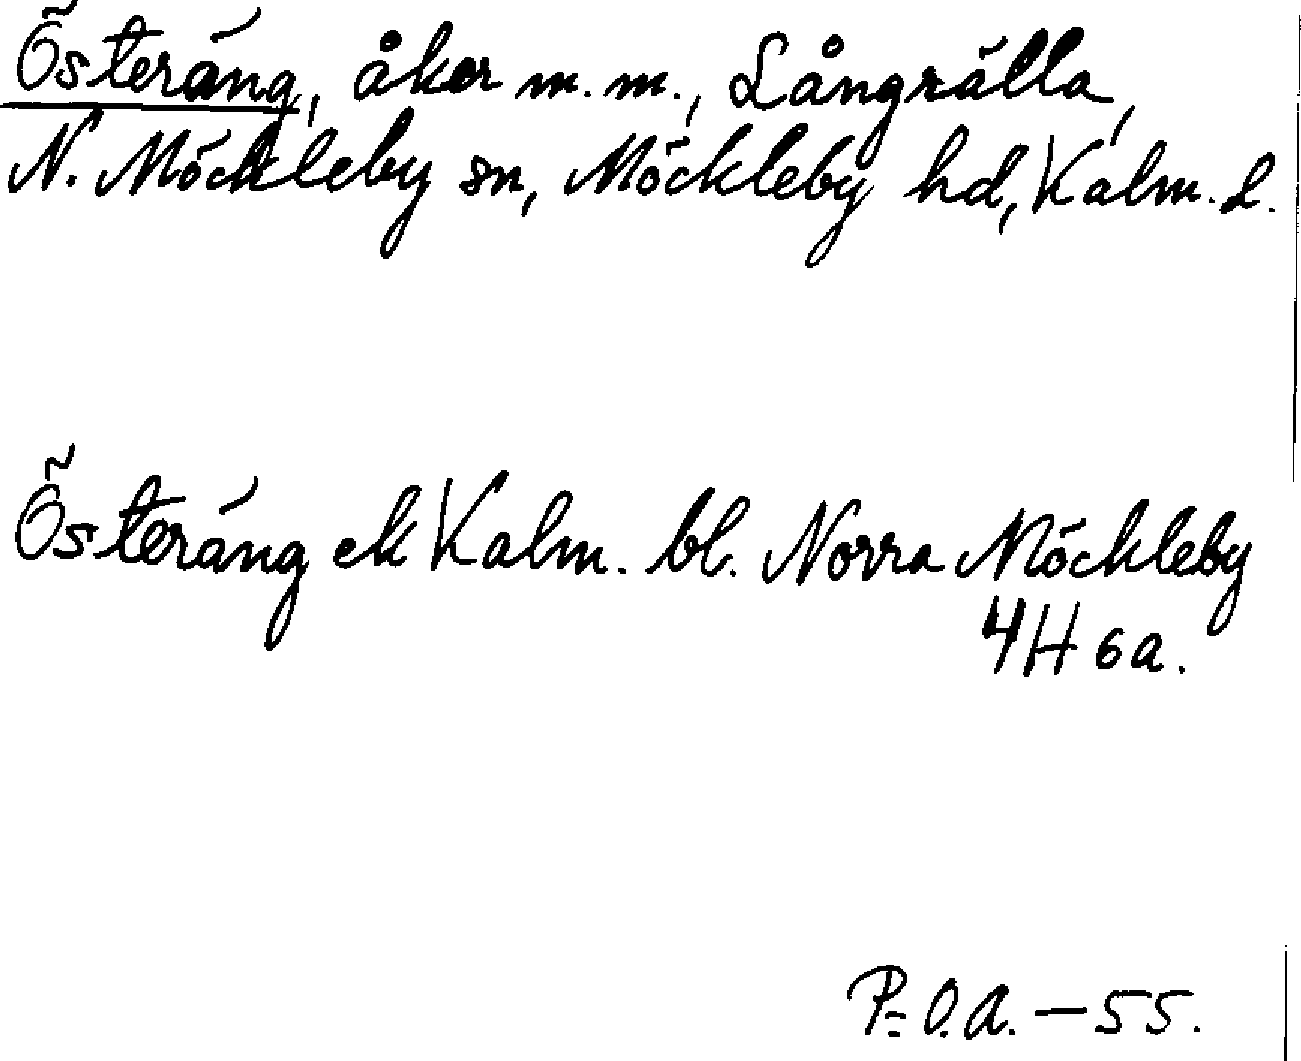 Österäng, åker m.m., Långrälla,
N. Möckleby sn, Möckleby hd, Kalm. L.
Österäng ek Kalm. bl. Norra Möckleby
4H 6a.
P=O.A. – 55.